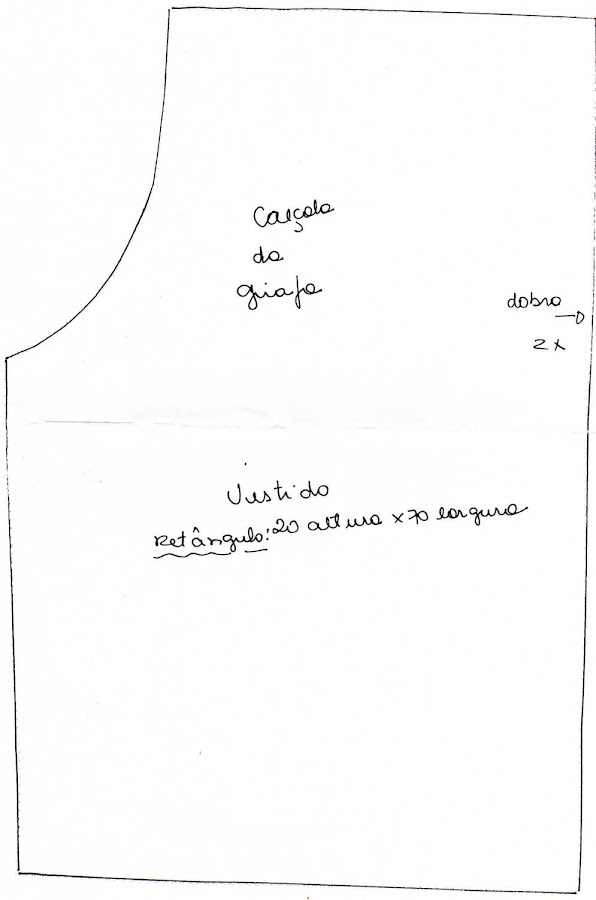 Calçola
da
girafa
dobra
2x
Vestido
Retângulo: 20 altura x 70 largura